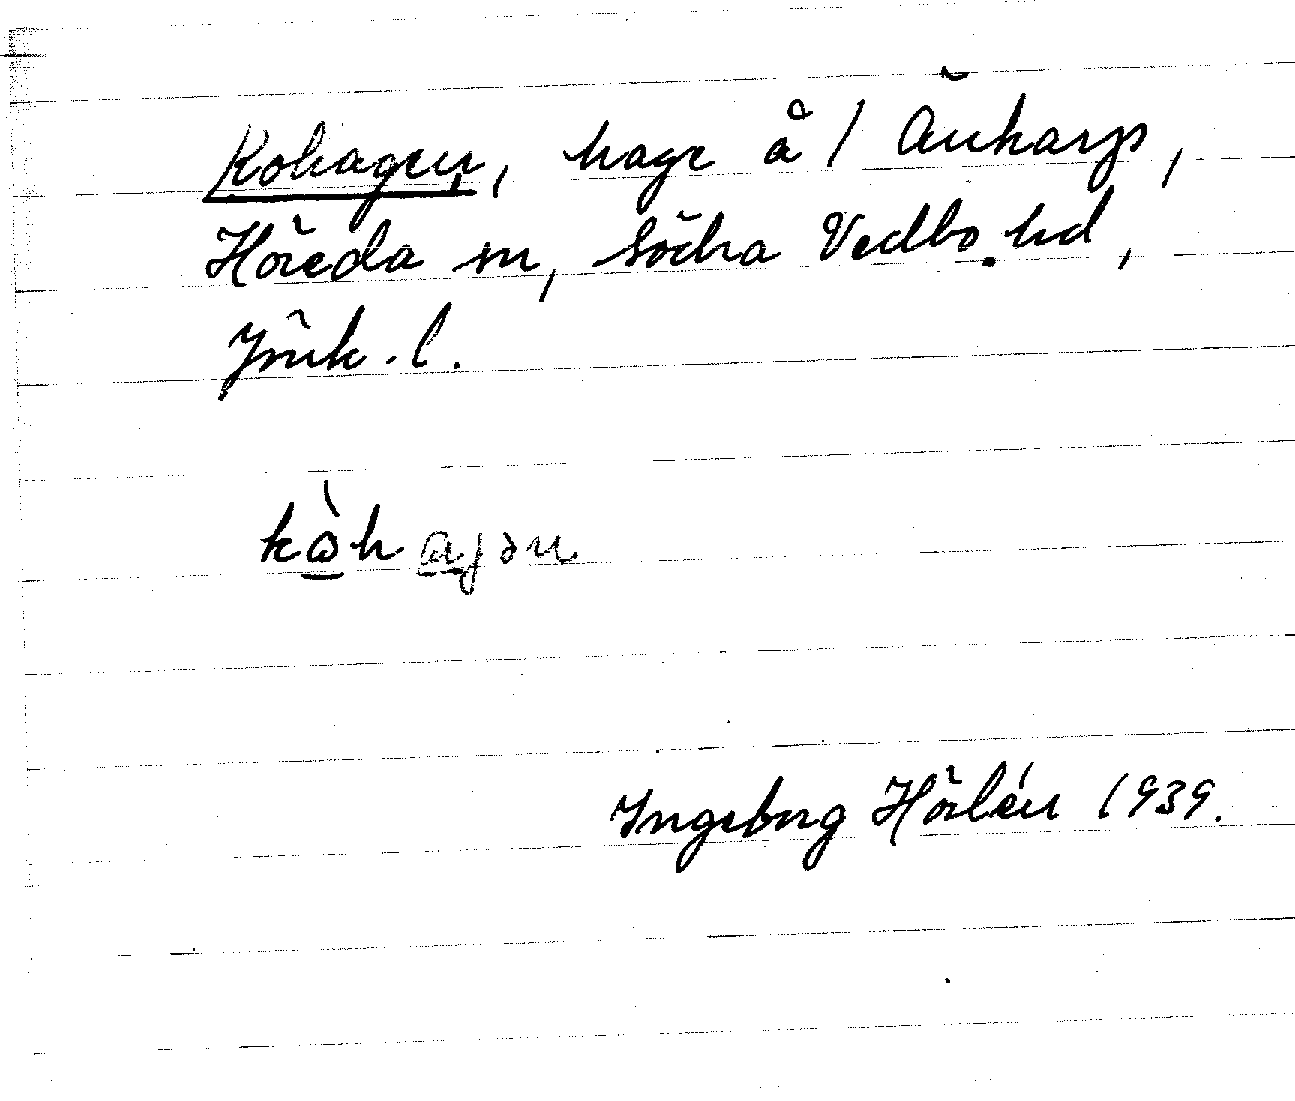 Kohagen, hage å / Änkarp,
Höreda sn, Södra Vedbo hd,
Jönk. l.
kòhagən
Ingeborg Hörlén 1939.